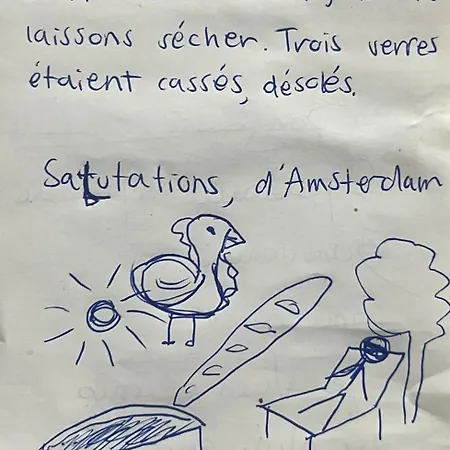 laissons sécher. Trois verres
étaient cassés, désolés.
Salutations, d'Amsterdam